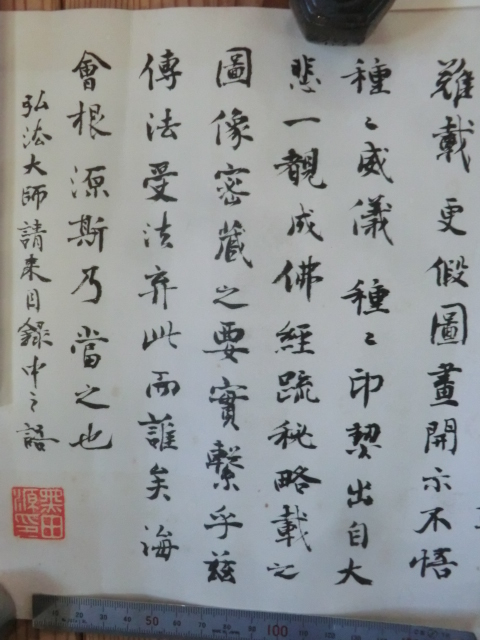 難載更假圖畫開示不悟
種々威儀種々印契出自大
悲一覩成佛經疏秘略載之
圖像密藏之要實繫乎茲
傳法受法弃此而誰矣海
會根源斯乃當之也
弘法大師請来目録中之語
50 100